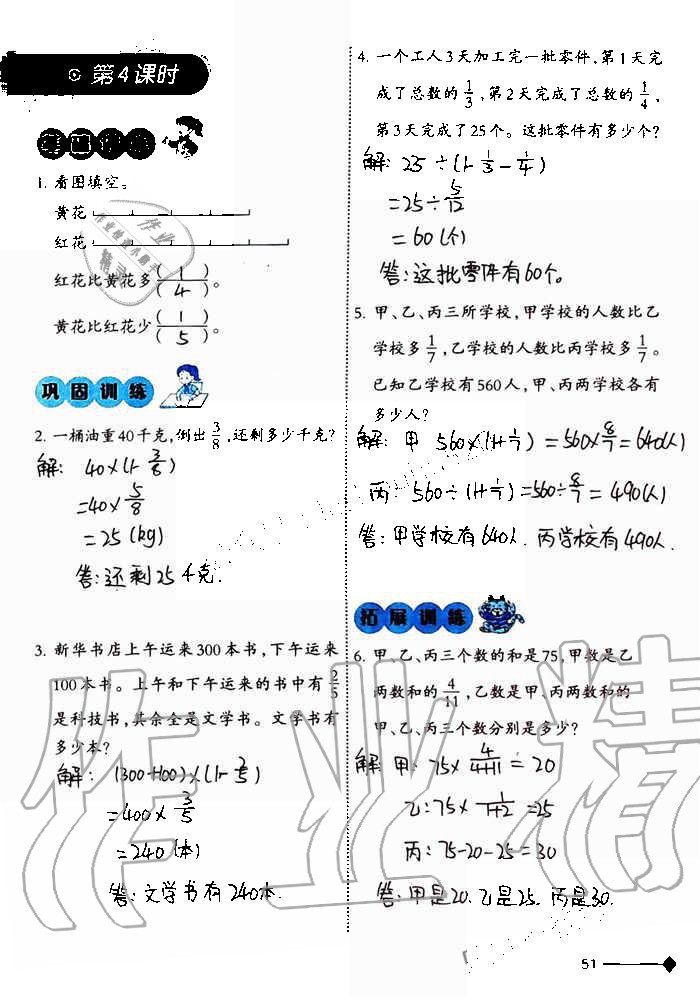 第4课时
基础训练
1. 看图填空。
黄花
红花
红花比黄花多(1)/(4)。
黄花比红花少(1)/(5)。
巩固训练
2. 一桶油重40千克,倒出3/8,还剩多少千克?
解: 40×(1-3/8)
=40×5/8
=25(kg)
答:还剩25千克.
3. 新华书店上午运来300本书,下午运来
100本书。上午和下午运来的书中有2/5
是科技书,其余全是文学书。文学书有
多少本?
解: (300+100)×(1-2/5)
=400×3/5
=240(本)
答:文学书有240本.
4. 一个工人3天加工完一批零件,第1天完
成了总数的1/3,第2天完成了总数的1/4,
第3天完成了25个。这批零件有多少个?
解: 25÷(1-1/3-1/4)
=25÷5/12
=60(个)
答:这批零件有60个。
5. 甲、乙、丙三所学校,甲学校的人数比乙
学校多1/7,乙学校的人数比丙学校多1/7。
已知乙学校有560人,甲、丙两学校各有
多少人?
解: 甲 560×(1+1/7)=560×8/7=640(人)
丙: 560÷(1+1/7)=560÷8/7=490(人)
答:甲学校有640人.丙学校有490人.
拓展训练
6. 甲、乙、丙三个数的和是75,甲数是乙
丙数和的4/11,乙数是甲、丙两数和的
甲、乙、丙三个数分别是多少?
解: 甲:75×4/4+11=20
乙:75×1/1+2=25
丙:75-20-25=30
答:甲是20.乙是25.丙是30.
51
作业精